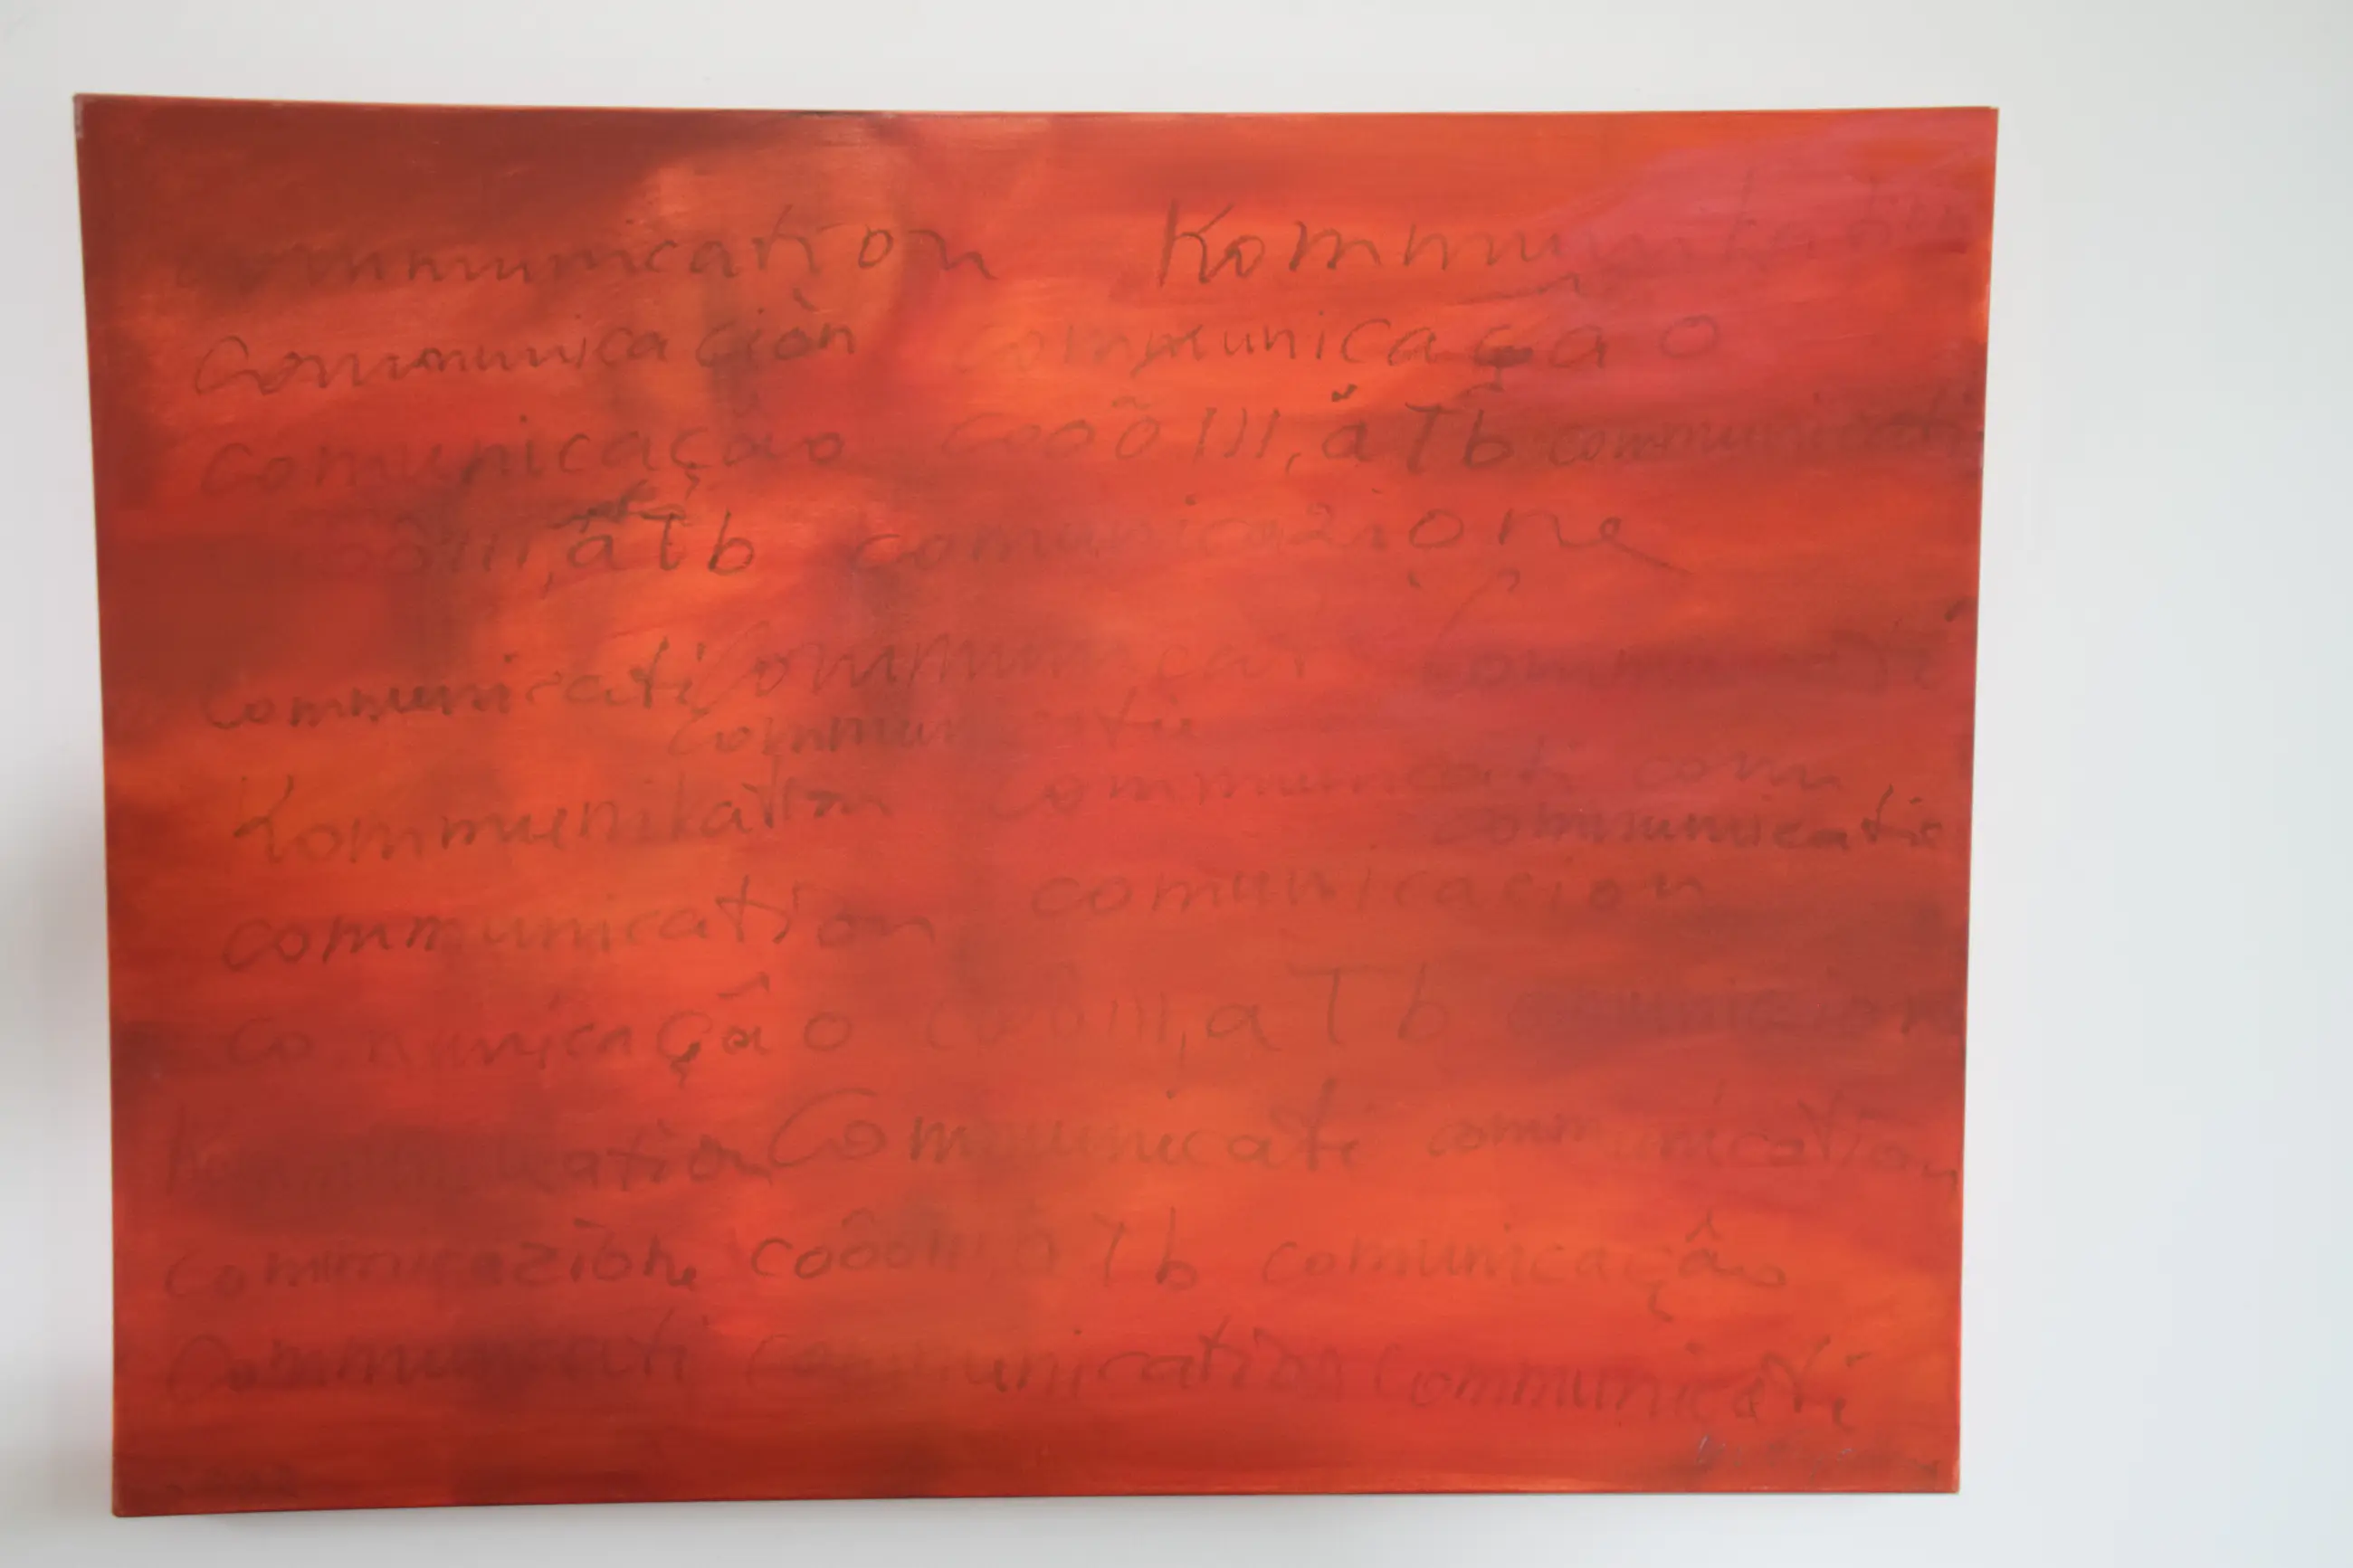 communication Kommunikation
Communicaciòn communicação
comunicação cooõIII,äTb communicati
ôIII,äTb comunicazione
Communicati Communicat communicati
Communicatie
Kommunikation Communicati com
communicatie
communication comunicacion
comunicação coôôIII,aTb
Kommunication Communicati communication
Communicazione coôôIII Tb comunicação
Communicati communication Communicati